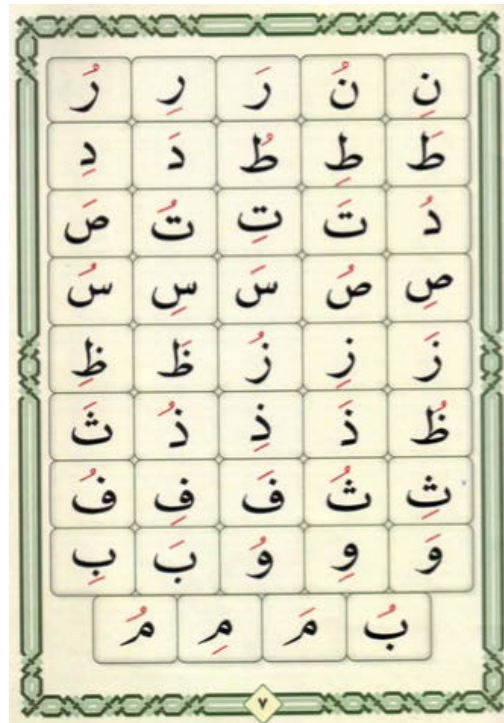 نِ نُ رَ رِ رُ
طَ طِ طُ دَ دِ
دُ تَ تِ تُ صَ
صِ صُ سَ سِ سُ
زَ زِ زُ ظَ ظِ
ظُ ذَ ذِ ذُ ثَ
ثِ ثُ فَ فِ فُ
وَ وِ وُ بَ بِ
بُ مَ مِ مُ
٧